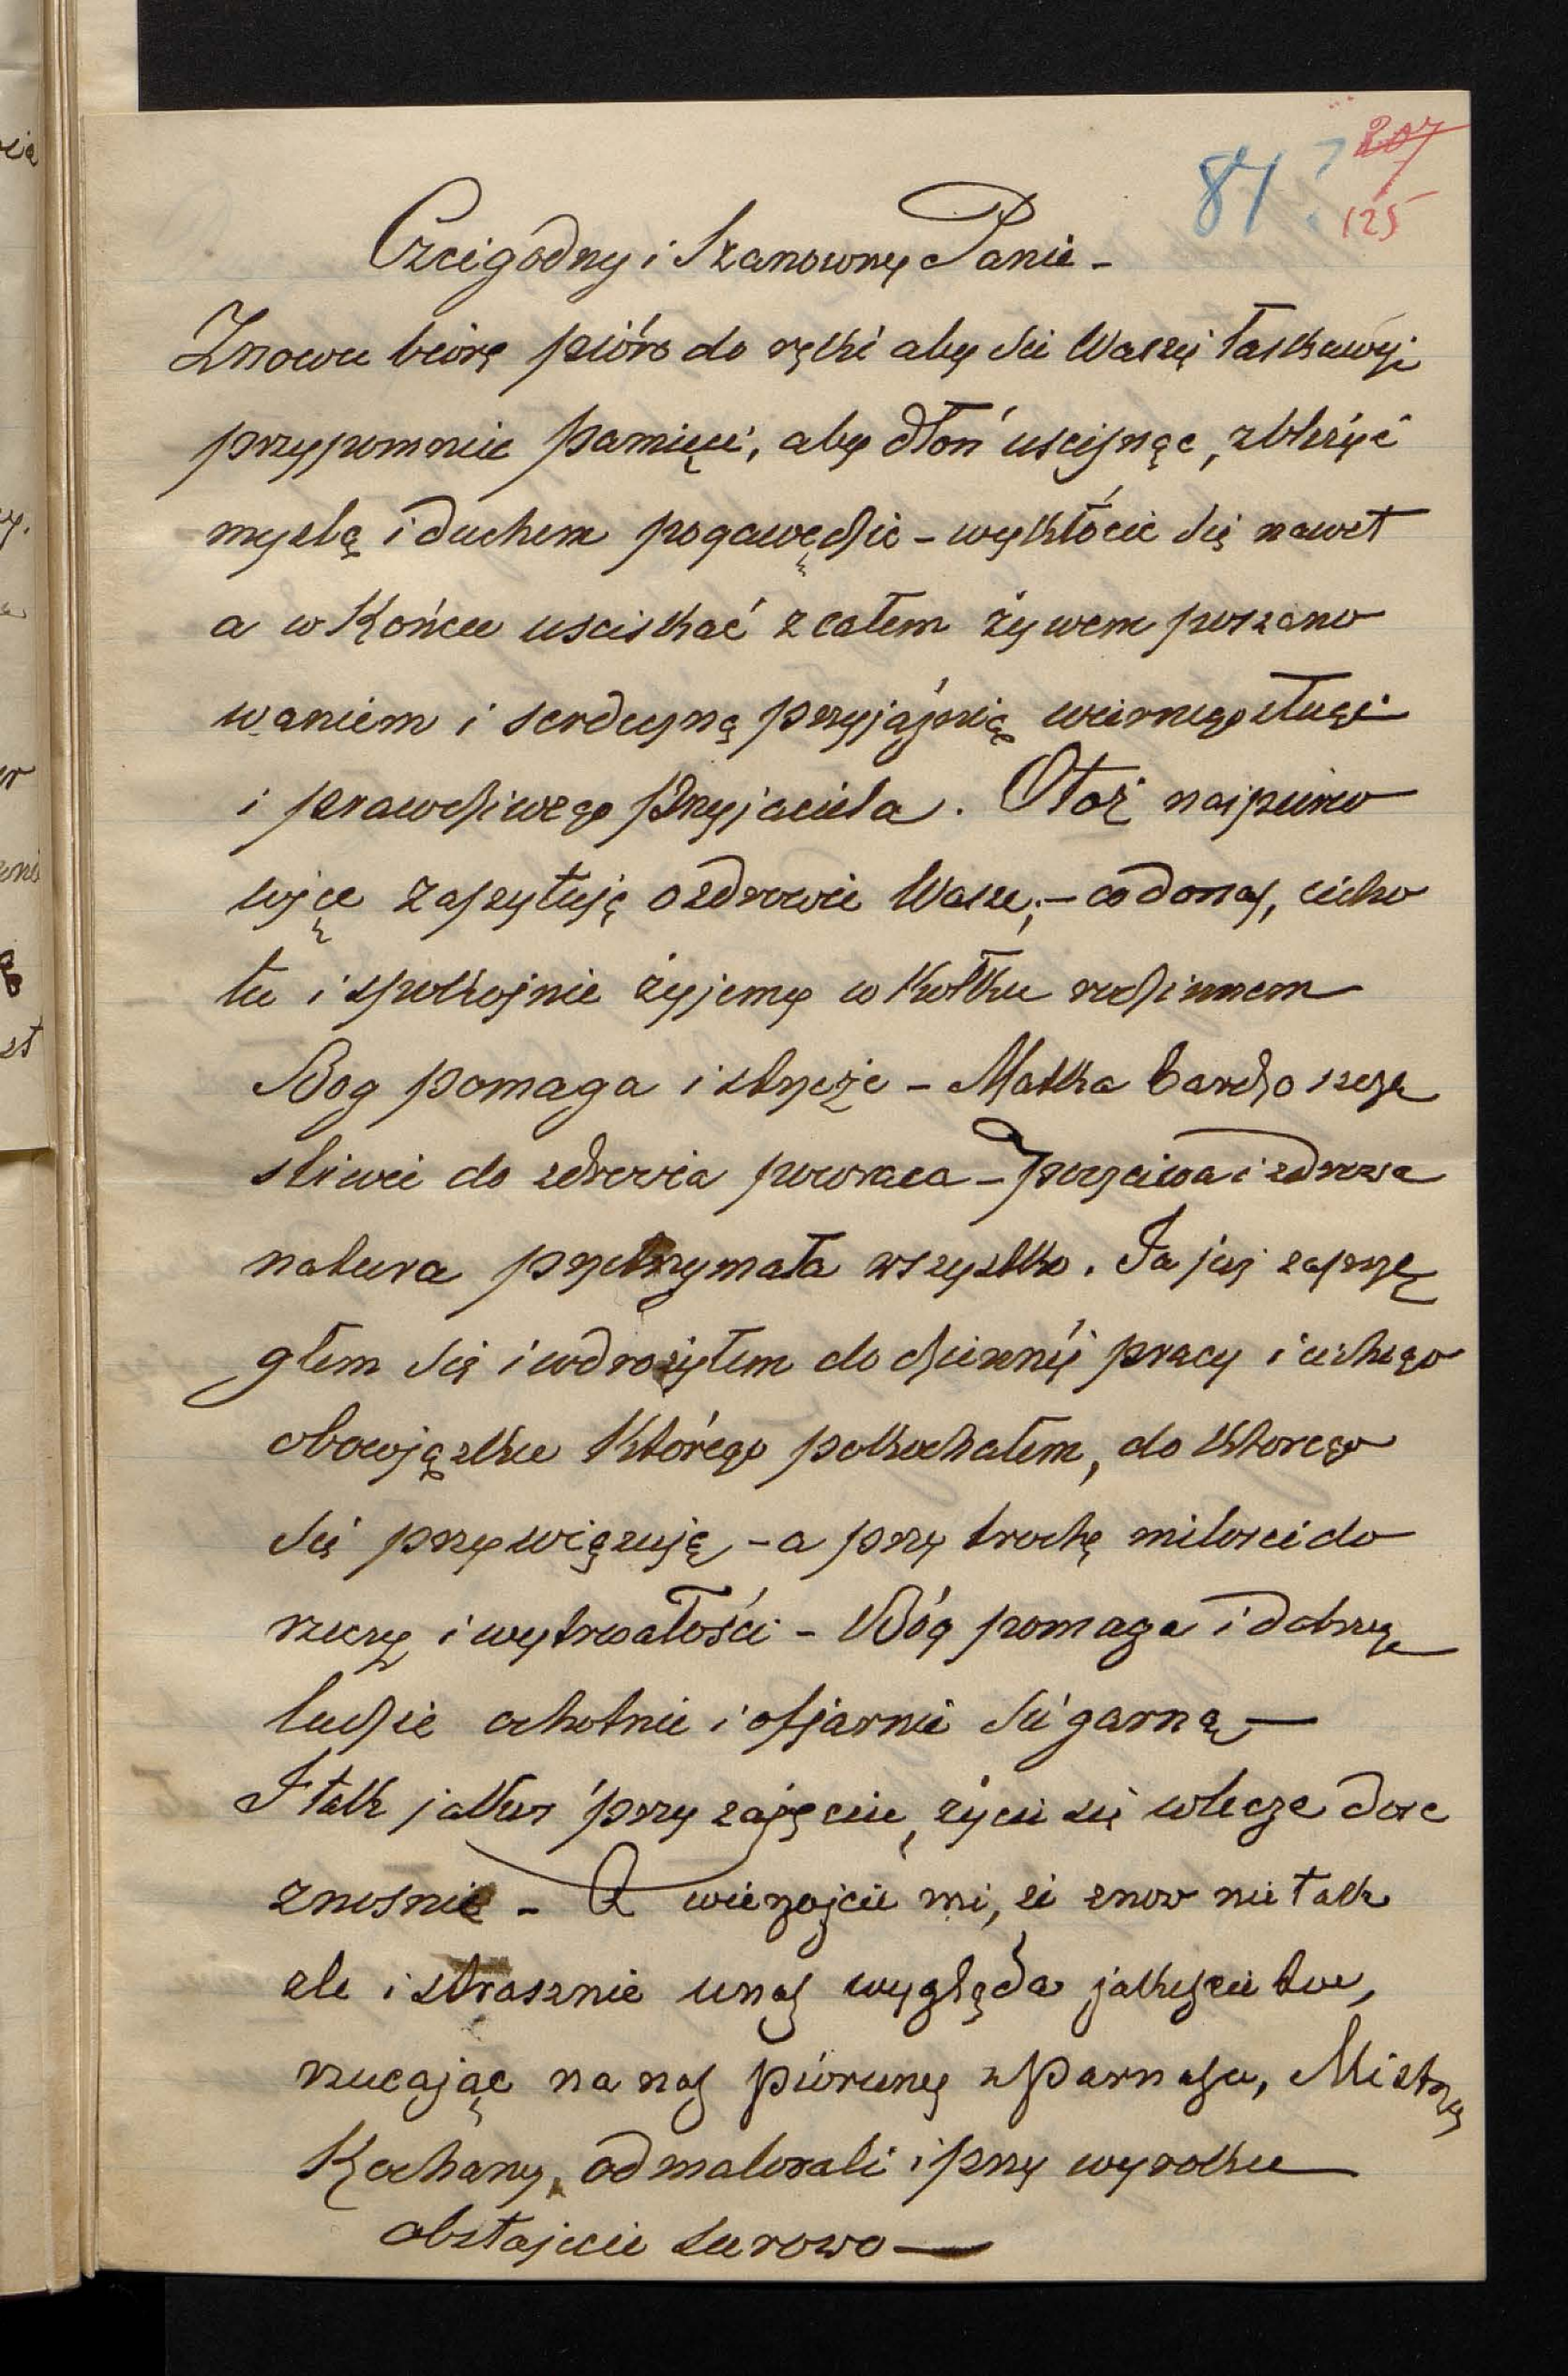 81 ? 207
125
Czcigodny i Szanowny Panie –
Znowu biorę pióro do ręki aby się Waszej łaskawej
przypomnić pamięci, aby dłoń uscisnąc, zbliżyć
myslą i duchem pogawędzic – wykłócic się nawet
a w Końcu usciskać z całem żywem poszano
waniem i serdeczną przyjaźnią wiernego sługi
i prawdziwego Przyjaciela. Otoż najpierw
więc zapytuję o zdrowie Wasze; – co do nas, cicho
tu i spokojnie żyjemy w kołku rodzinnem
Bog pomaga i strzeże – Matka bardzo szczę
sliwie do zdrowia powraca – poczciwa i zdrowa
natura przetrzymała wszystko. Ja już zaprzę
głem się i wdrożyłem do dziennej pracy i cichego
obowiązku którego pokochałem, do ktorego
się przywiązuję – a przy trochę milosci do
rzeczy i wytrwałości – Bóg pomaga i dobrzy
ludzie ochotnie i ofjarnie się garną –
I tak jakos przy zajęciu, życie się wlecze dosc
znosnie – A wierzajcie mi, że znow nie tak
zle i strasznie u nas wygląda jakescie to,
rzucając na nas pioruny z Parnasu, Mistrzu
Kochany, odmalowali i przy wyroku
obstajecie surowo –